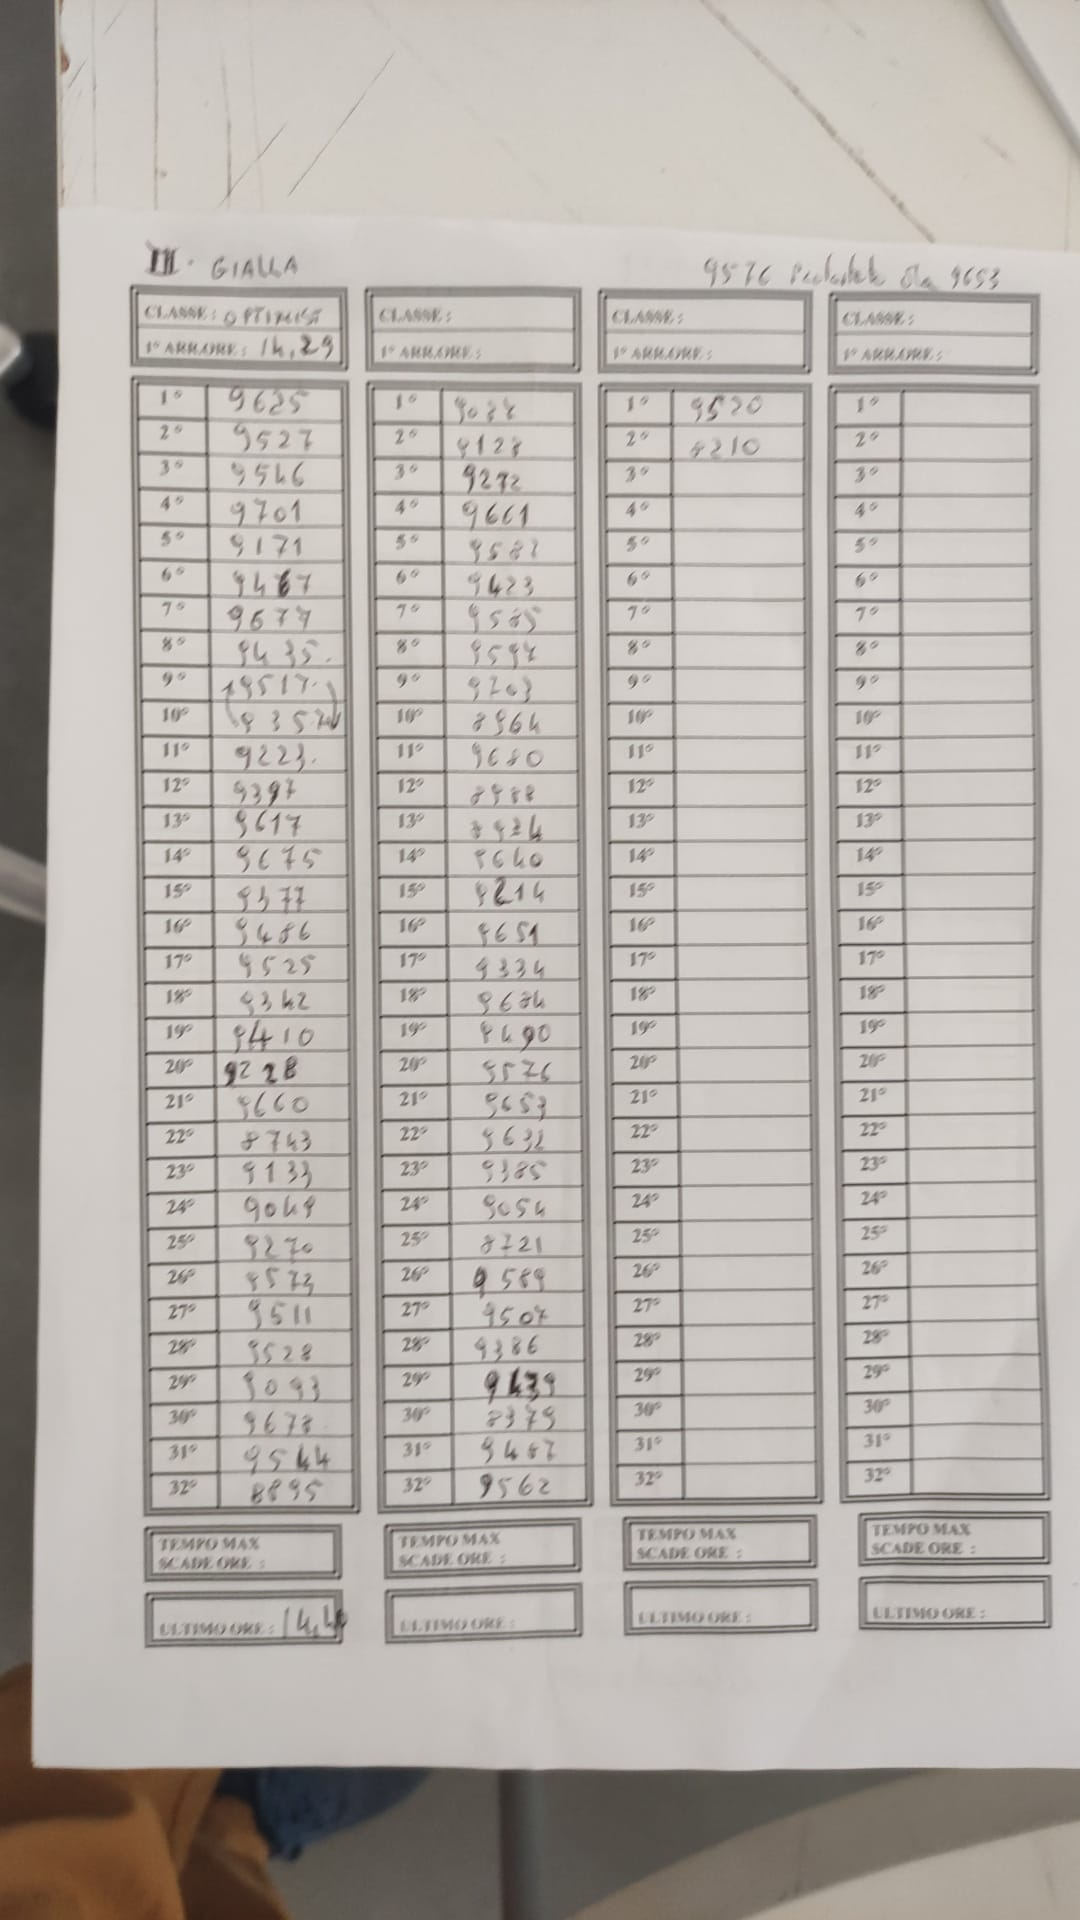 III. GIALLA
9576 9653
CLASSE: OPTIMIST
1° ARR.ORE: 14,29
1° 9625
2° 9527
3° 9546
4° 9701
5° 9171
6° 9467
7° 9677
8° 9435.
9° 9517.
10° 9357
11° 9223.
12° 9397
13° 9617
14° 9675
15° 9377
16° 9486
17° 9525
18° 9342
19° 9410
20° 9228
21° 9660
22° 8743
23° 9133
24° 9049
25° 9270
26° 9573
27° 9511
28° 9528
29° 9093
30° 9678
31° 9544
32° 8895
TEMPO MAX
SCADE ORE :
ULTIMO ORE :
CLASSE:
1° ARR.ORE:
1°
2° 9128
3° 9272
4° 9661
5° 9582
6° 9423
7° 9585
8° 9597
9° 9203
10° 8964
11° 9680
12° 8988
13°
14° 9640
15° 9214
16° 9651
17° 9334
18° 9684
19° 9490
20° 9576
21° 9653
22° 9632
23° 9385
24° 9054
25° 8721
26° 9589
27° 9507
28° 9386
29° 9439
30° 8379
31° 9487
32° 9562
TEMPO MAX
SCADE ORE :
ULTIMO ORE :
CLASSE:
1° ARR.ORE:
1° 9520
2° 9210
3°
4°
5°
6°
7°
8°
9°
10°
11°
12°
13°
14°
15°
16°
17°
18°
19°
20°
21°
22°
23°
24°
25°
26°
27°
28°
29°
30°
31°
32°
TEMPO MAX
SCADE ORE :
ULTIMO ORE :
CLASSE:
1° ARR.ORE:
1°
2°
3°
4°
5°
6°
7°
8°
9°
10°
11°
12°
13°
14°
15°
16°
17°
18°
19°
20°
21°
22°
23°
24°
25°
26°
27°
28°
29°
30°
31°
32°
TEMPO MAX
SCADE ORE :
ULTIMO ORE :